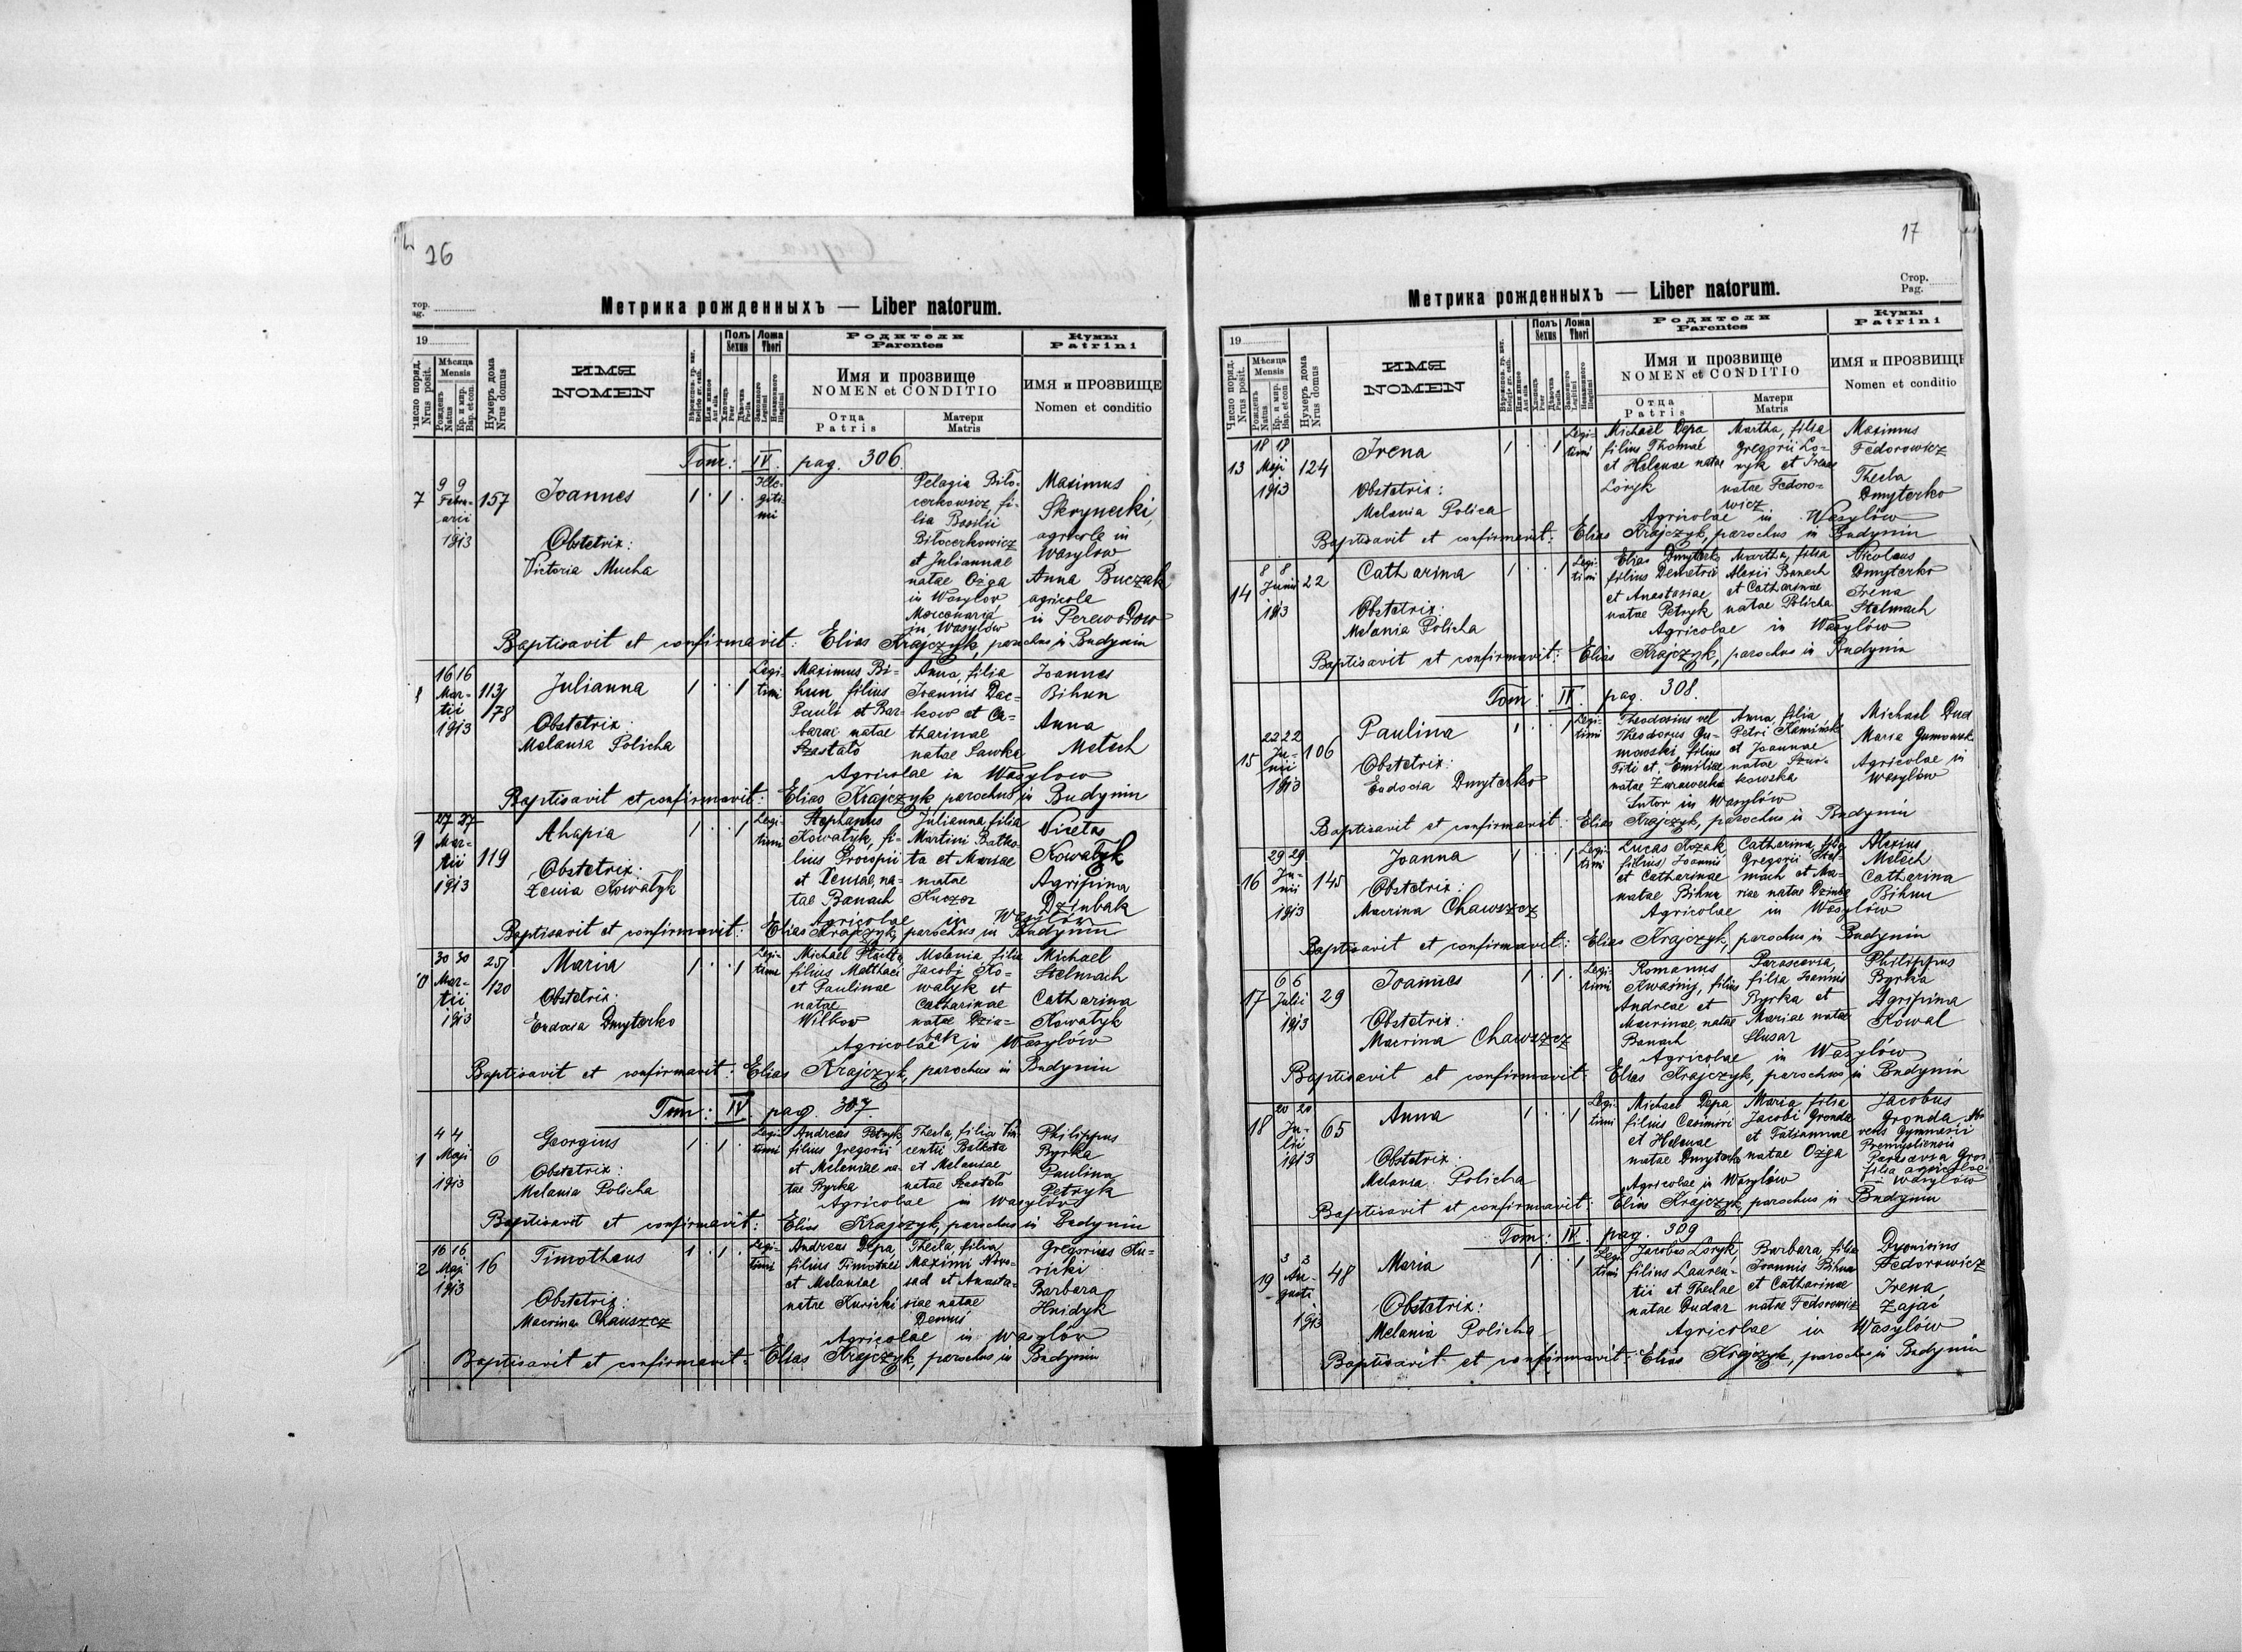 26
тор.
ag.
Метрика рожденныхъ — Liber natorum.
19
число поряд.
Nrus posit.
Мѣсяца
Mensis
Рожденъ
Natus
Кр. и мѵр.
Bap. et con
Нумеръ дома
Nrus domus
ИМЯ
NOMEN
Или инное
Aut alia
Полъ
Sexus
Хлопецъ
Puer
Дѣвочка
Puella
Ложа
Thori
Законного
Legitimi
Незаконного
Illegitimi
Родители
Parentes
Имя и прозвище
NOMEN et CONDITIO
Отца
Patris
Матери
Matris
Кумы
Patrini
ИМЯ и ПРОЗВИЩЕ
Nomen et conditio
Tom: IV. pag. 306.
7
9 9
Febru-
arii
1913
157
Joannes
Obstetrix:
Victoria Mucha
1 . 1 .
Ille-
giti-
mi
Pelagia Biło-
cerkowicz, fi-
lia Basilii
Biłocerkowicz
et Juliannae
natae Ożga
in Wasylow
Mercenaria
in Wasylów
Maximus
Skrynecki,
agricola in
Wasylow
Anna Buczak
agricola
in Perewodow
Baptisavit et confirmavit: Elias Krajczyk, parochus in Budynin
16 16
Mar-
tii
1913
113/
/78
Julianna
Obstetrix:
Melania Policha
1 . . 1
Legi-
timi
Maximus Bi-
hun filius
Pauli et Bar-
barae natae
Szastało
Anna, filia
Joannis Dac-
kow et Ca-
tharinae
natae Sawka
Agricolae in Wasylow
Joannes
Bihun
Anna
Metech
Baptisavit et confirmavit: Elias Krajczyk, parochus in Budynin
9
27 27
Mar-
tii
1913
119
Ahapia
Obstetrix:
Xenia Kowałyk
1 . . 1
Legi-
timi
Stephanus
Kowałyk, fi-
lius Procopii
et Xeniae, na-
tae Banach
Julianna filia
Martini Bałko-
ta et Mariae
natae
Kuczer
Agricolae in Wasylów
Nicetas
Kowałyk
Agripina
Dziubak
Baptisavit et confirmavit: Elias Krajczyk, parochus in Budynin
0
30 30
Mar-
tii
1913
25/
/120
Maria
Obstetrix:
Eudocia Dmyterko
1 . . 1
Legi-
timi
Michael Płachta
filius Matthaei
et Paulinae
natae
Wilkow
Melania filia
Jacobi Ko-
wałyk et
Catharinae
natae Dziu-
bak
Agricolae in Wasylów
Michael
Stelmach
Catharina
Kowałyk
Baptisavit et confirmavit: Elias Krajczyk, parochus in Budynin
Tom: IV. pag. 307.
1
4 4
Maji
1913
6
Georgius
Obstetrix:
Melania Policha
1 . 1 .
Legi-
timi
Andreas Petryk,
filius Gregorii
et Melaniae na-
tae Byrka
Thecla, filia Vin-
centii Bałkota
et Melaniae
natae Szastało
Agricolae in Wasylów
Philippus
Byrka
Paulina
Petryk
Baptisavit et confirmavit: Elias Krajczyk, parochus in Budynin
2
16 16
Maji
1913
16
Timotheus
Obstetrix:
Macrina Chauszcz
1 . 1 .
Legi-
timi
Andreas Depa,
filius Timothei
et Melaniae
natae Kuricki
Thecla, filia
Maximi Nowo-
sad et Anasta-
siae natae
Demus
Agricolae in Wasylów
Gregorius Ku-
ricki
Barbara
Hnidyk
Baptisavit et confirmavit: Elias Krajczyk, parochus in Budynin
17
Стор.
Pag.
Метрика рожденныхъ — Liber natorum.
19
Число поряд.
Nrus posit.
Мѣсяца
Mensis
Рожденъ
Natus
Кр. и мѵр.
Bap. et con
Нумеръ дома
Nrus domus
ИМЯ
NOMEN
Или инное
Aut alia
Полъ
Sexus
Хлопецъ
Puer
Дѣвочка
Puella
Ложа
Thori
Законного
Legitimi
Незаконного
Illegitimi
Родители
Parentes
Имя и прозвище
NOMEN et CONDITIO
Отца
Patris
Матери
Matris
Кумы
Patrini
ИМЯ и ПРОЗВИЩЕ
Nomen et conditio
13
18 18
Maji
1913
124
Irena
Obstetrix:
Melania Polica
1 . . 1
Legi-
timi
Michael Depa
filius Thomae
et Helenae natae
Łoryk
Martha, filia
Gregorii Ło-
ryk et Irenae
natae Fedoro-
wicz
Agricolae in Wasylów
Maximus
Fedorowicz
Thecla
Dmyterko
Baptisavit et confirmavit: Elias Krajczyk, parochus in Budynin
14
8 8
Junii
1913
22
Catharina
Obstetrix:
Melania Policha
1 . . 1
Legi-
timi
Elias Dmyterko
filius Demetrii
et Anastasiae
natae Petryk
Martha, filia
Alexii Banach
et Catharinae
natae Policha
Agricolae in Wasylów
Nicolaus
Dmyterko
Irena
Stelmach
Baptisavit et confirmavit: Elias Krajczyk, parochus in Budynin
Tom: IV. pag. 308.
15
22 22
Ju-
nii
1913
106
Paulina
Obstetrix:
Eudocia Dmyterko
1 . . 1
Legi-
timi
Theodosius vel
Theodorus Gu-
mowski filius
Titi et Emiliae
natae Żurawecka
Anna, filia
Petri Kamiński
et Joannae
natae Szur-
kowska
Sutor in Wasylów
Michael Dud
Maria Gumowsk
Agricolae in
Wasylów
Baptisavit et confirmavit: Elias Krajczyk, parochus in Budynin
16
29 29
Ju-
nii
1913
145
Joanna
Obstetrix:
Macrina Chawszcz
1 . . 1
Legi-
timi
Lucas Kozak
filius Joannis
et Catharinae
natae Bihun
Catharina, filia
Gregorii Stel-
mach et Ma-
riae natae Dziuba
Agricolae in Wasylów
Alexius
Metech
Catharina
Bihun
Baptisavit et confirmavit: Elias Krajczyk, parochus in Budynin
17
6 6
Julii
1913
29
Joannes
Obstetrix:
Macrina Chawszcz
1 . 1 .
Legi-
timi
Romanus
Kwaśnij, filius
Andreae et
Macrinae, natae
Banach
Parascevia,
filia Joannis
Byrka et
Mariae natae
Slusar
Agricolae in Wasylów
Philippus
Byrka
Agripina
Kowal
Baptisavit et confirmavit: Elias Krajczyk, parochus in Budynin
18
20 20
Ju-
lii
1913
65
Anna
Obstetrix:
Melania Policha
1 . . 1
Legi-
timi
Michael Depa
filius Casimiri
et Helenae
natae Dmyterko
Maria filia
Jacobi Gronda
et Tatiannae
natae Ożga
Agricolae in Wasylów
Jacobus
Gronda,
Gymnasii
Premysliensis
Parascevia Gron
filia agricolae
in Wasylów
Baptisavit et confirmavit: Elias Krajczyk, parochus in Budynin
Tom: IV. pag. 309
19
3 3
Au-
gusti
1913
48
Maria
Obstetrix:
Melania Policha
1 . . 1
Legi-
timi
Jacobus Łoryk,
filius Lauren-
tii et Theclae
natae Dudar
Barbara, filia
Joannis Bihun
et Catharinae
natae Fedorowicz
Agricolae in Wasylów
Dyonisius
Fedorowicz
Irena
Zając
Baptisavit et confirmavit: Elias Krajczyk, parochus in Budynin